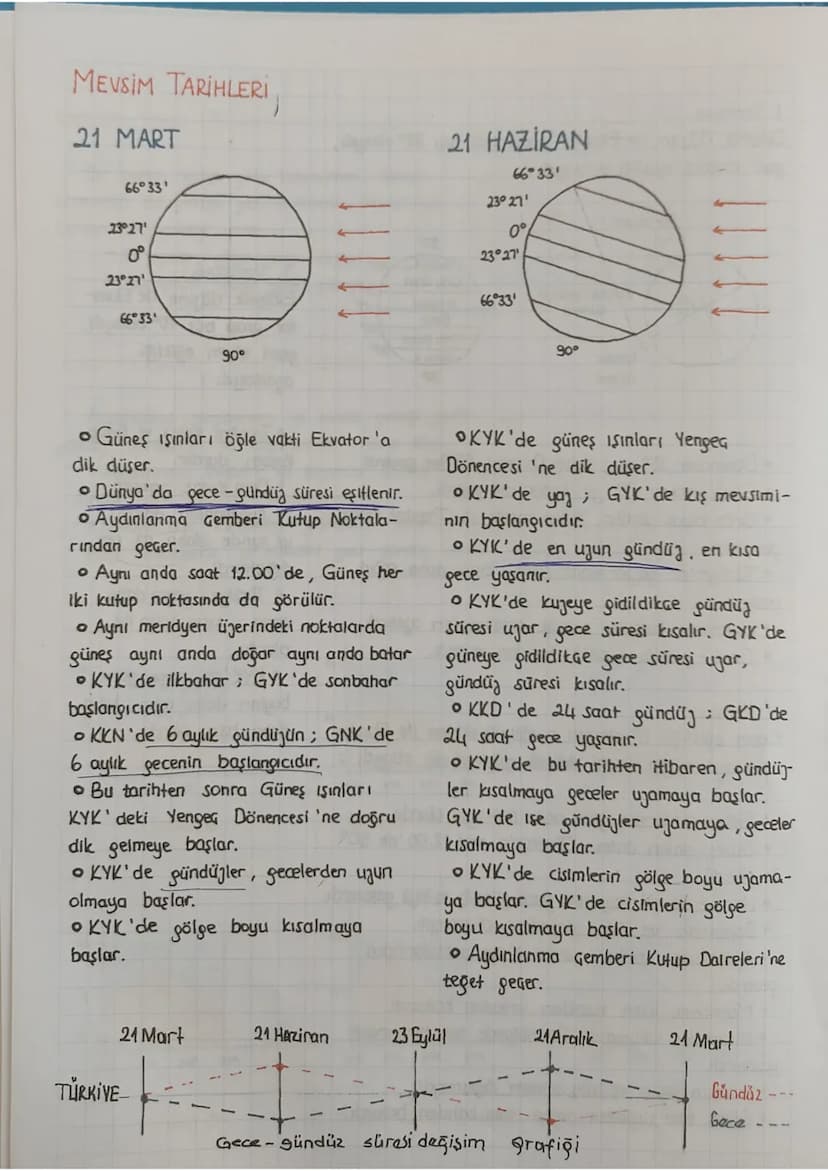 MEVSİM TARİHLERİ,
21 MART
66°33'
23°27'
0°
23°27'
66°33'
90°
o Güneş ışınları öğle vakti Ekvator'a
dik düşer.
o Dünya'da gece-gündüz süresi eşitlenir.
o Aydınlanma Çemberi Kutup Noktala-
rından geçer.
o Aynı anda saat 12.00'de, Güneş her
iki kutup noktasında da görülür.
o Aynı meridyen üzerindeki noktalarda
güneş aynı anda doğar aynı anda batar
o KYK'de ilkbahar ; GYK'de sonbahar
başlangıcıdır.
o KKN'de 6 aylık gündüzün ; GNK'de
6 aylık gecenin başlangıcıdır.
o Bu tarihten sonra Güneş ışınları
KYK'deki Yengeç Dönencesi'ne doğru
dik gelmeye başlar.
o KYK'de gündüzler, gecelerden uzun
olmaya başlar.
o KYK'de gölge boyu kısalmaya
başlar.
21 HAZİRAN
66°33'
23°27'
0°
23°27'
66°33'
90°
o KYK'de güneş ışınları Yengeç
Dönencesi'ne dik düşer.
o KYK'de yaz ; GYK'de kış mevsimi-
nin başlangıcıdır.
o KYK'de en uzun gündüz, en kısa
gece yaşanır.
o KYK'de kuzeye gidildikçe gündüz
süresi uzar, gece süresi kısalır. GYK'de
güneye gidildikçe gece süresi uzar,
gündüz süresi kısalır.
o KKD'de 24 saat gündüz ; GKD'de
24 saat gece yaşanır.
o KYK'de bu tarihten itibaren, gündüz-
ler kısalmaya geceler uzamaya başlar.
GYK'de ise gündüzler uzamaya, geceler
kısalmaya başlar.
o KYK'de cisimlerin gölge boyu uzama-
ya başlar. GYK'de cisimlerin gölge
boyu kısalmaya başlar.
o Aydınlanma Çemberi Kutup Daireleri'ne
teğet geçer.
21 Mart 21 Haziran 23 Eylül 21 Aralık 21 Mart
TÜRKİYE
Gündüz ---
Gece ---
Gece-gündüz süresi değişim grafiği